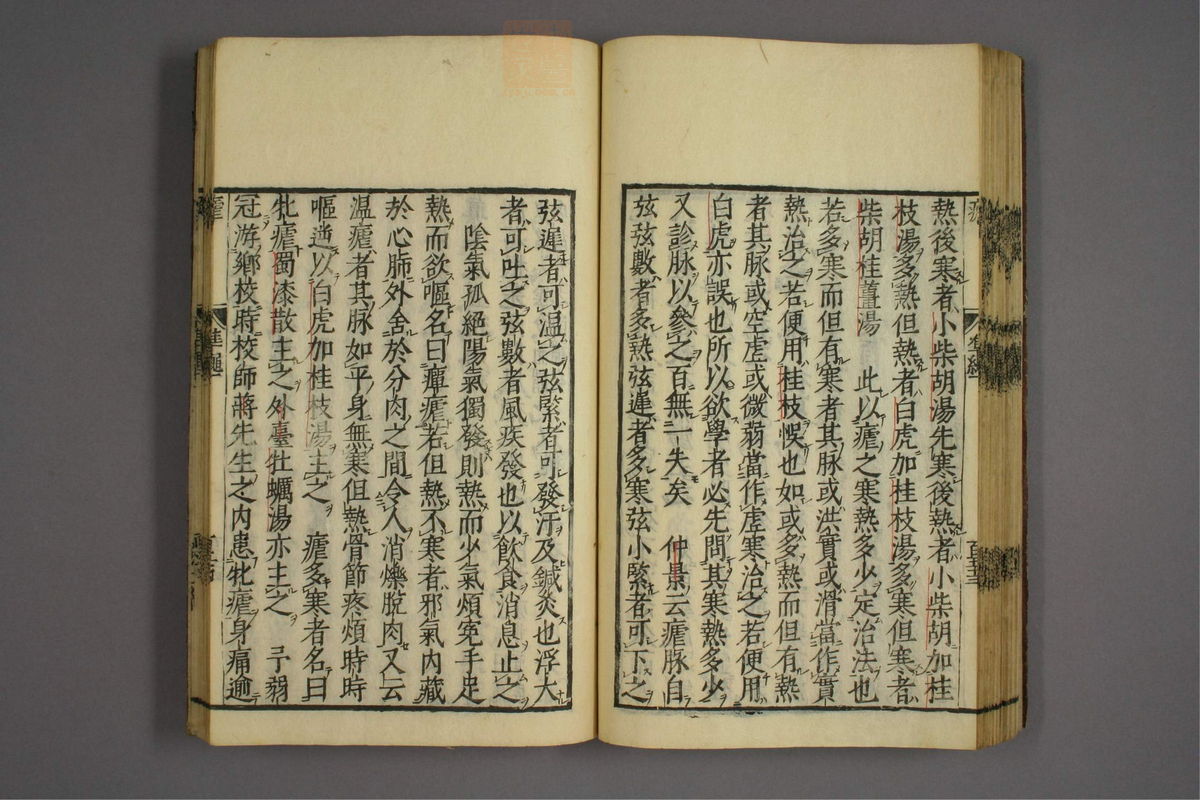 熱後寒者小柴胡湯先寒後熱者小柴胡加桂
枝湯多熱但熱者白虎加桂枝湯多寒但寒者
柴胡桂薑湯 此以瘧之寒熱多少定治法也
若多寒而但有寒者其脉或洪實或滑當作實
熱治之若便用桂枝悞也如或多熱而但有熱
者其脉或空虗或微弱當作虗寒治之若便用
白虎亦誤也所以欲學者必先問其寒熱多少
又診脉以參之百無一失矣 仲景云瘧脉自
弦弦數者多熱弦遲者多寒弦小緊者可下之
弦遲者可温之弦緊者可發汗及鍼灸也浮大
者可吐之弦數者風疾發也以飲食消息止之
陰氣孤絶陽氣獨發則熱而少氣煩寃手足
熱而欲嘔名曰癉瘧若但熱不寒者邪氣内藏
於心肺外舍於分肉之間令人消爍脫肉又云
温瘧者其脉如平身無寒但熱骨節疼煩時時
嘔逆以白虎加桂枝湯主之 瘧多寒者名曰
牝瘧蜀漆散主之外臺牡蠣湯亦主之 予弱
冠游鄉校時校師蔣先生之内患牝瘧身痛逾
瘧
準繩